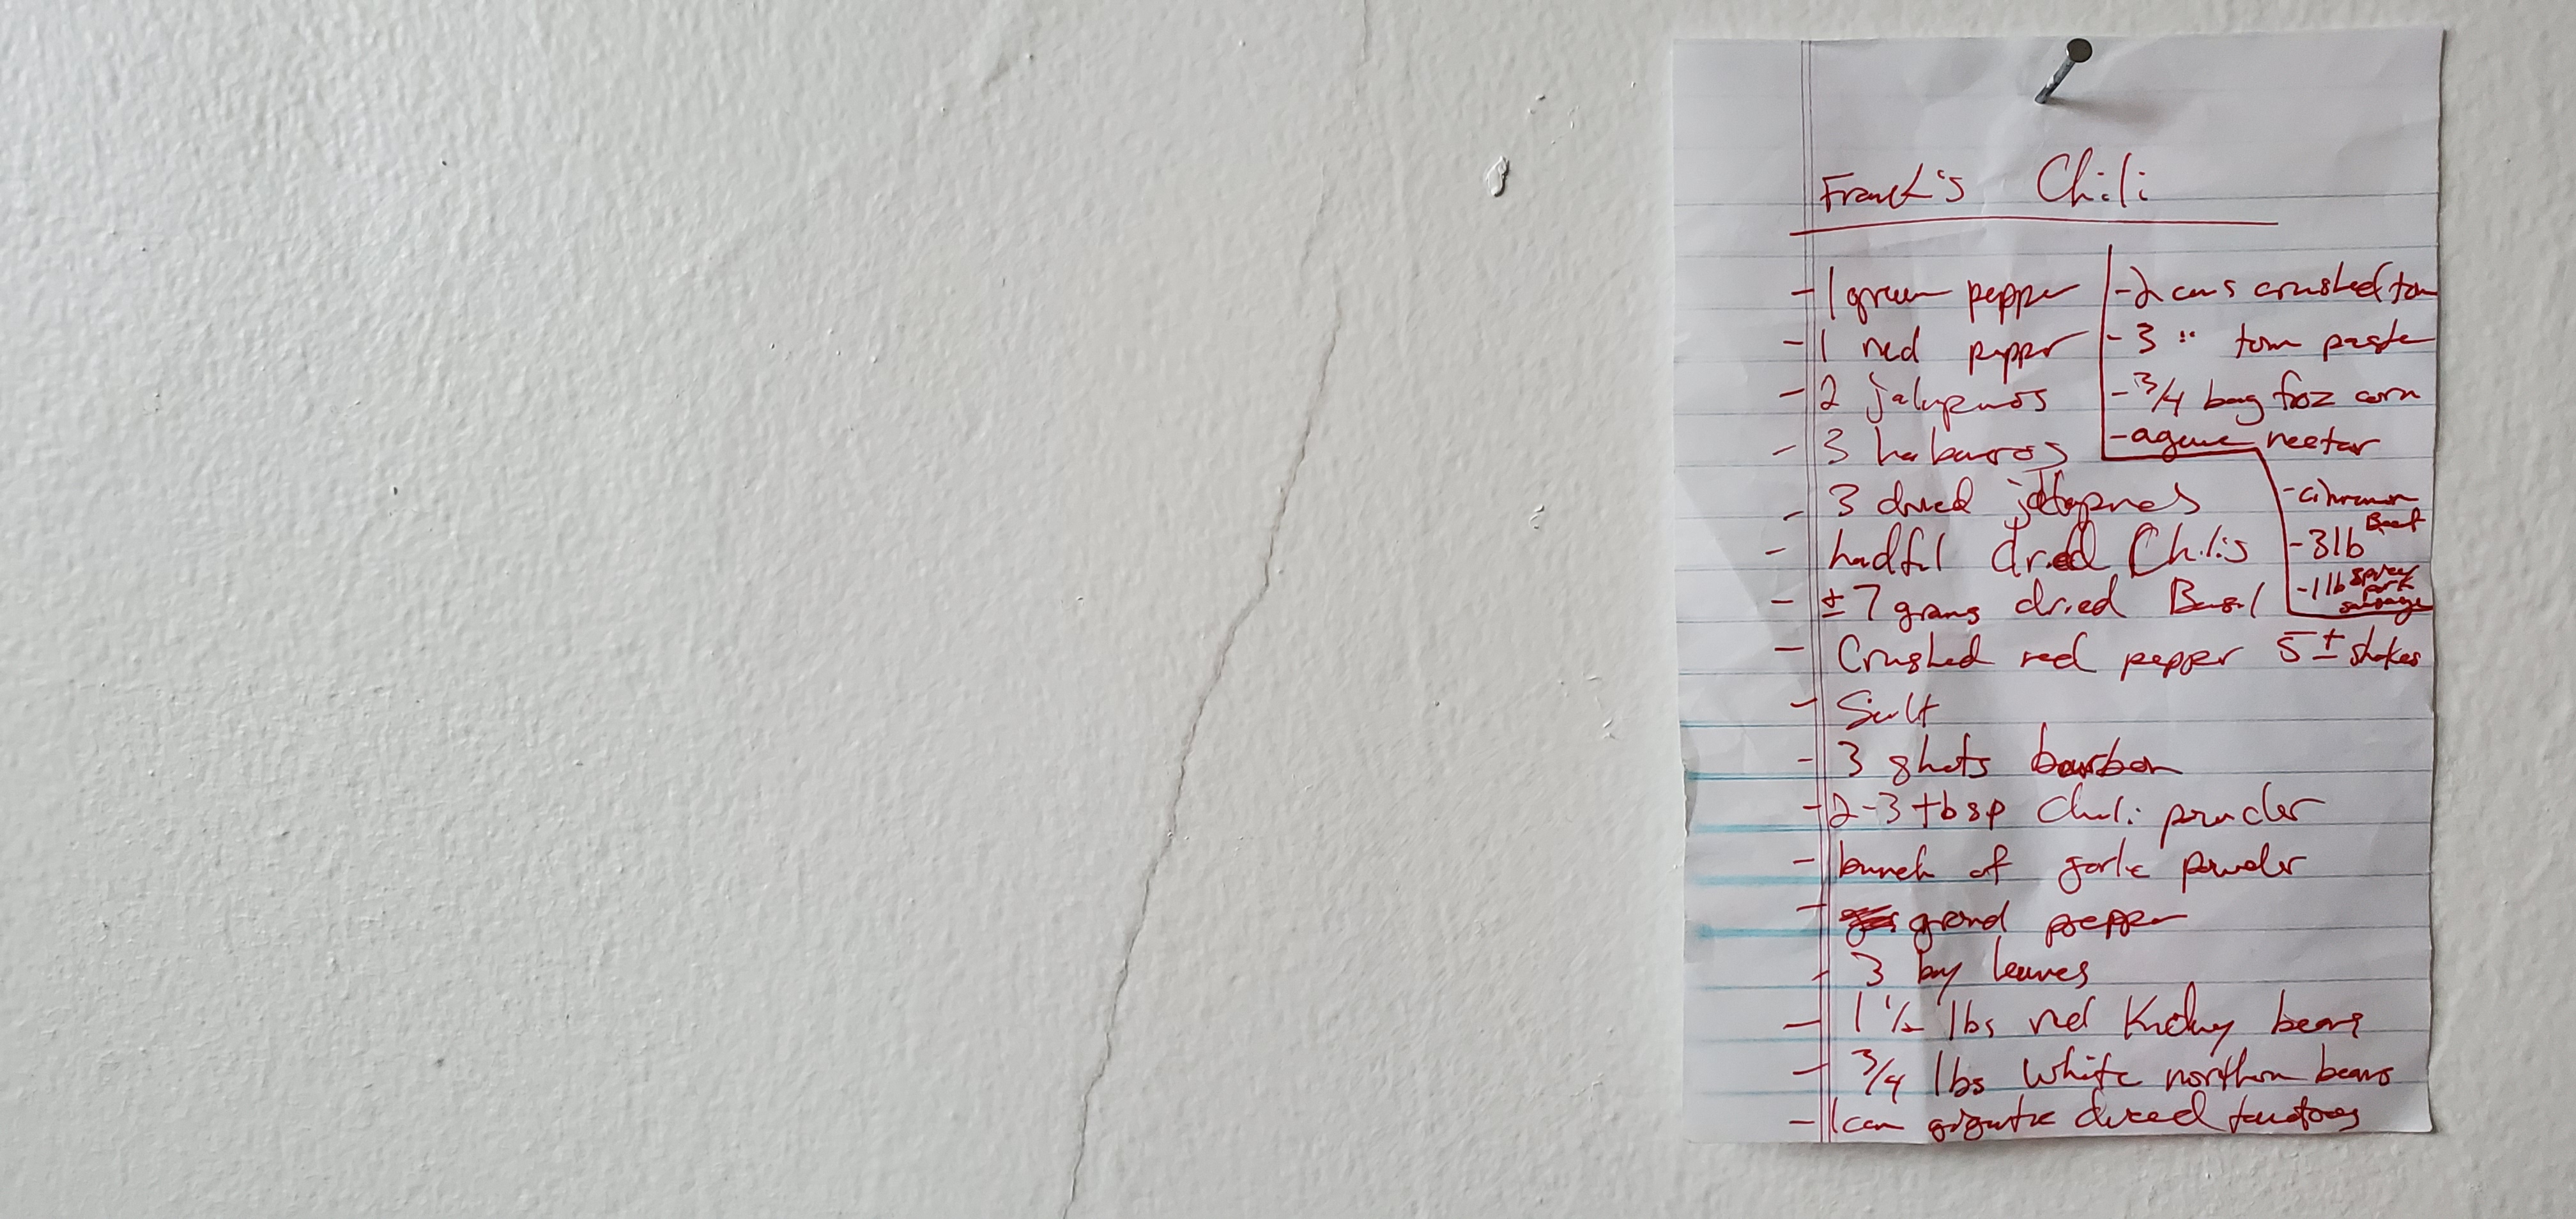 Frank's Chili
- 1 green pepper
- 1 red pepper
- 2 jalapenos
- 3 habaneros
- 3 dried jalapenos
- hadful dried Chilis
- ± 7 grams dried Basil
- Crushed red pepper 5 ± shakes
- Salt
- 3 shots bourbon
- 2-3 tbsp Chili powder
- bunch of garlic powder
- grond pepper
- 3 bay leaves
- 1 1/2 lbs red Kidney beans
- 3/4 lbs White northern beans
- 1 can gigantic diced tomatoes
- 2 cans crushed tom
- 3 " tom paste
- 3/4 bag froz corn
- agave nectar
- cinnamon
- 3 lb Beef
- 1 lb spicy pork sausage